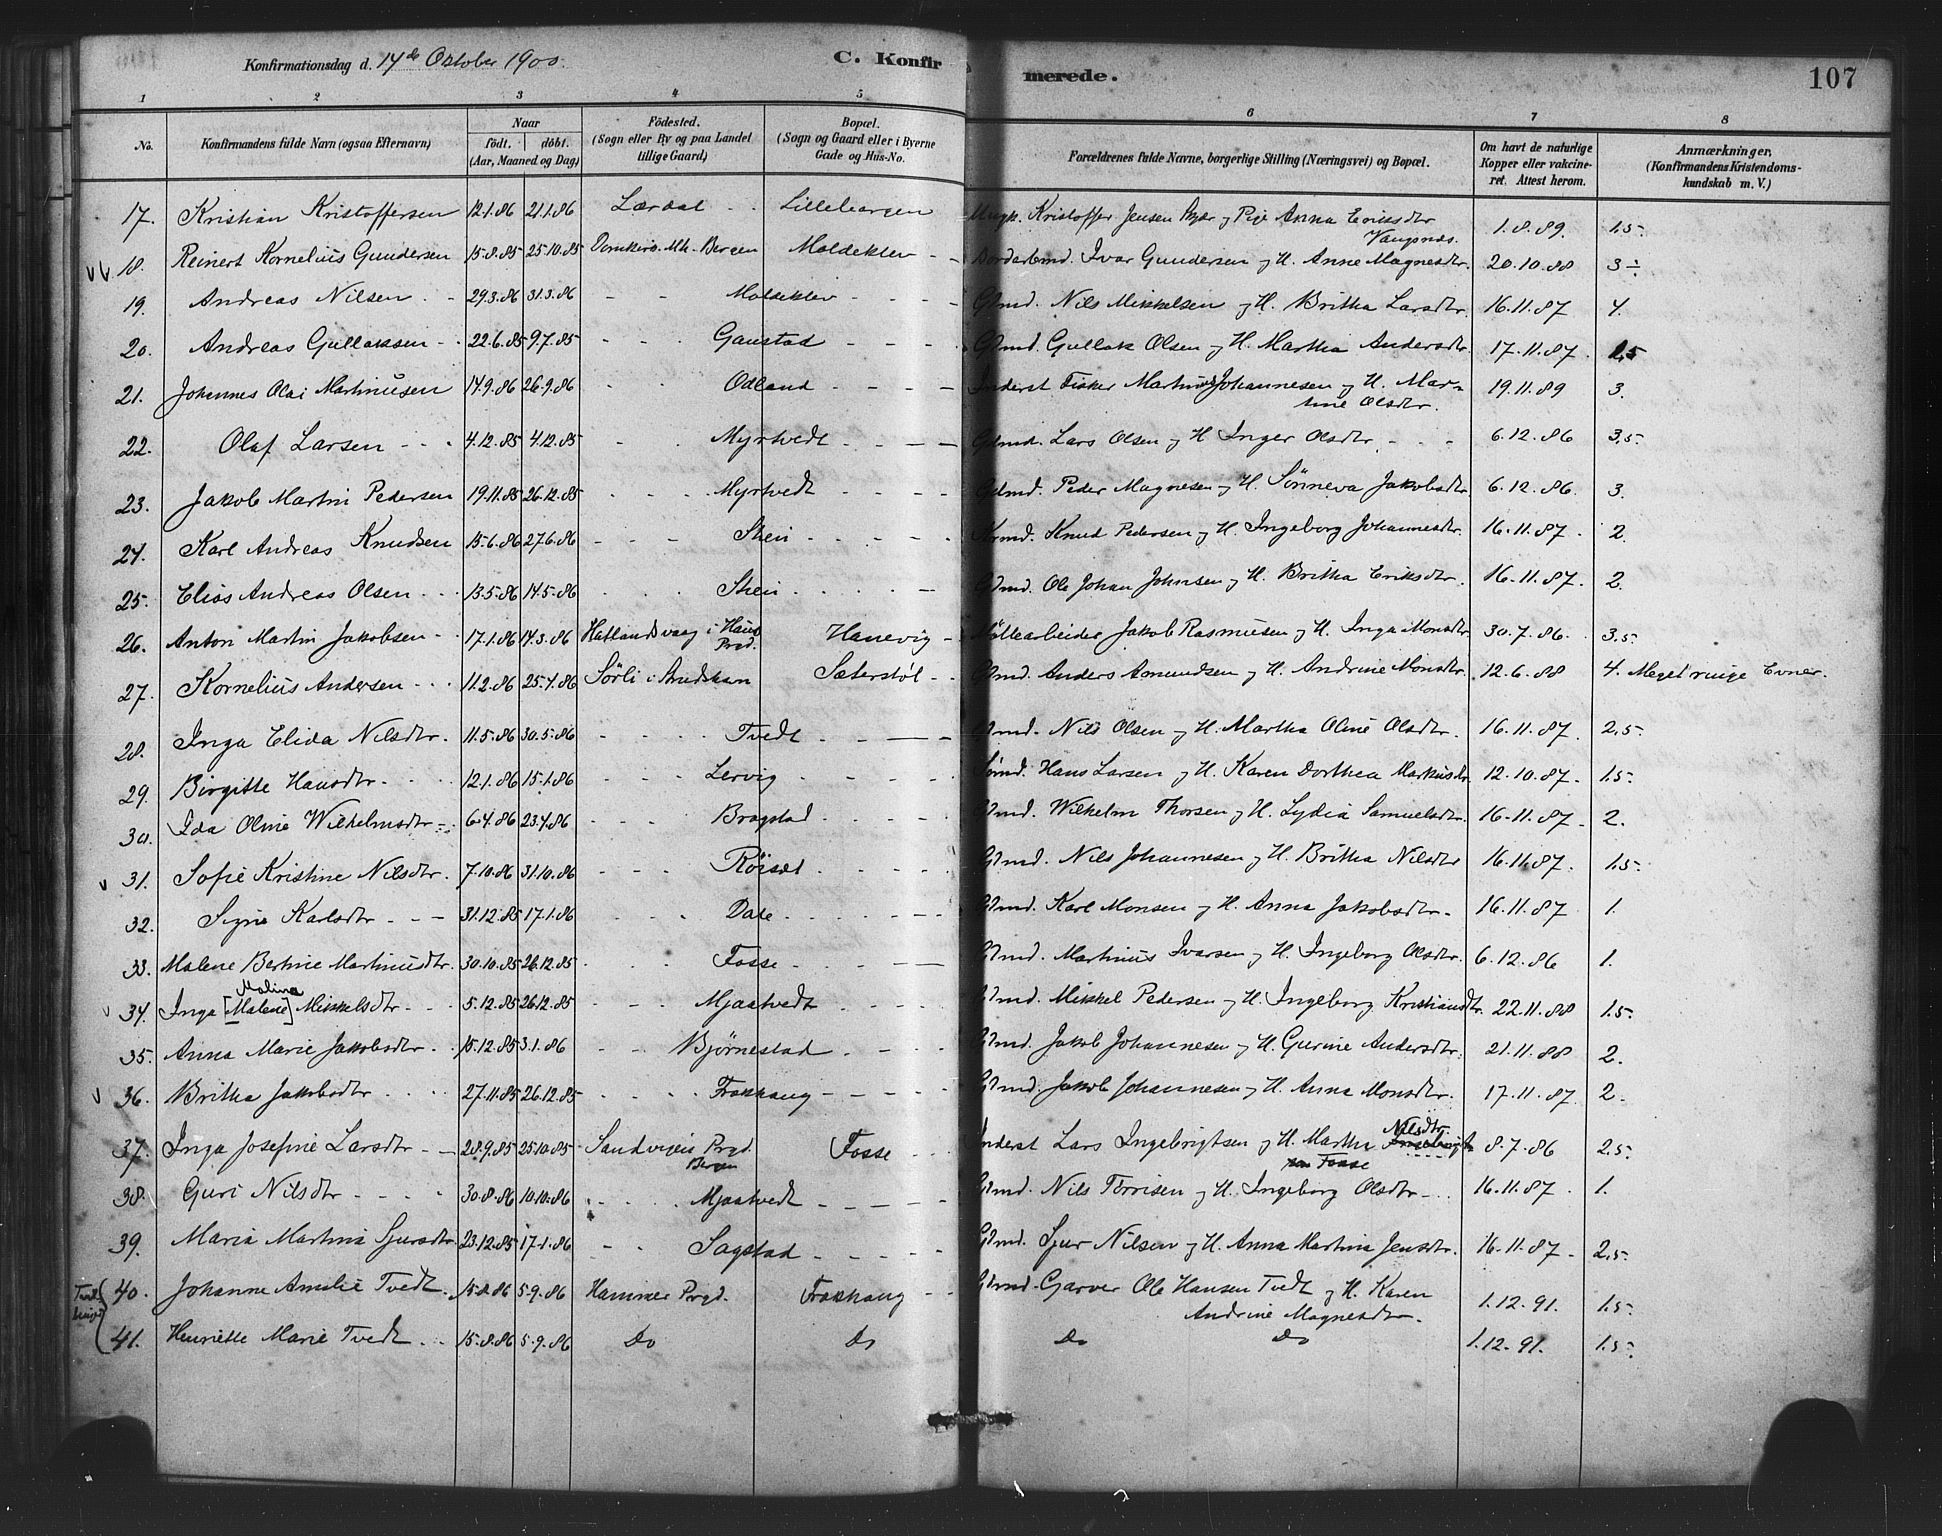 Konfirmationsdag d. 14de Oktober 1900. C. Konfir merede. 107
1 2 3 4 5 6 7 8
No. Konfirmandens fulde Navn (ogsaa Efternavn) Naar født. døbt. (Aar, Maaned og Dag) Fødested. (Sogn eller By og paa Landet tillige Gaard) Bopæl. (Sogn og Gaard eller i Byerne Gade og Hus-No. Forældrenes fulde Navne, borgerlige Stilling (Næringsvei) og Bopæl. Om havt de naturlige Kopper eller vakcineret. Attest herom. Anmærkninger, (Konfirmandens Kristendomskundskab m. V.)
17. Kristian Kristoffersen 12.1.86 21.1.86 Lærdal Lillebergen Ungk. Kristoffer Jensen og Pige Anna Eriksdtr Vangsnes. 1.8.89. 1.5
18. Reinert Kornelius Gundersen 15.8.85 25.10.85 Domkirk. Mh. Bergen Moldeklev Ivar Gundersen og H. Anne Magnesdtr. 20.10.88 3 ÷
19. Andreas Nilsen 29.3.86 31.3.86 Moldeklev Gdmd. Nils Mikkelsen og H. Britha Larsdtr. 16.11.87 4.
20. Andreas Gullaksen 22.6.85 9.7.85 Gaustad Gdmd. Gullak Olsen og H. Martha Andersdtr. 17.11.87. 2,5
21. Johannes Olai Martinusen 14.9.86 26.9.86 Odland Inderst Fisker Martinus Johannesen og H. Martine Olsdtr. 19.11.89 3.
22. Olaf Larsen 4.12.85 4.12.85 Myrtvedt Gdmd. Lars Olsen og H Inger Olsdtr 6.12.86 3,5
23. Jakob Martin Pedersen 19.11.85 26.12.85 Myrtvedt Gdmd. Peder Magnesen og H. Sønneva Jakobsdtr. 6.12.86. 3.
24. Karl Andreas Knudsen 15.6.86 27.6.86 Stein Knud Pedersen og H. Ingeborg Johannesdtr. 16.11.87. 2.
25. Elias Andreas Olsen 13.5.86 14.5.86 Stein Gdmd. Ole Johan Johnsen og H. Britha Eriksdtr. 16.11.87. 2.
26. Anton Martin Jakobsen 17.1.86 14.3.86 Hatlandsvaag i Haus Prgd. Hanevig Møllearbeider Jakob Rasmusen og H. Inga Monsdtr. 30.7.86. 3.5
27. Kornelius Andersen 11.2.86 25.4.86 Sørli i Strudshavn Sæterstøl Gdmd. Anders Amundsen og H. Andrine Monsdtr. 12.6.88 4. Meget ringe Evner.
28. Inga Elida Nilsdtr. 11.5.86 30.5.86 Tvedt Gdmd. Nils Olsen og H. Martha Oline Olsdtr. 16.11.87. 2,5
29. Birgitte Hansdtr. 12.1.86 15.1.86 Lervig Hans Larsen og H. Karen Dorthea Markusdtr. 12.10.87. 1.5
30. Ida Oline Wilhelmsdtr. 6.4.86 23.4.86 Bragstad Gdmd. Wilhelm Thorsen og H. Lydia Samuelsdtr. 16.11.87. 2.
31. Sofie Kristine Nilsdtr. 7.10.86 31.10.86 Røiset Gdmd. Nils Johannesen og H. Britha Nilsdtr 16.11.87. 1.5
32. Signe Karlsdtr 31.12.85 17.1.86 Dale Gdmd. Karl Monsen og H. Anna Jakobsdtr. 16.11.87 1.
33. Malene Bertine Martinusdtr. 30.10.85 26.12.85 Fosse Gdmd. Martinus Ivarsen og H. Ingeborg Olsdtr. 6.12.86 1.
34. Inga [Malene] Malina Mikkelsdtr. 5.12.85 26.12.85 Mjaatvedt Gdmd. Mikkel Pedersen og H. Ingeborg Kristiansdtr. 22.11.88 1.5.
35. Anna Marie Jakobsdtr. 15.12.85 3.1.86 Bjørnestad Gdmd. Jakob Johannesen og H. Gurine Andersdtr. 21.11.88 2.
36. Britha Jakobsdtr 27.11.85 26.12.85 Frekhaug Gdmd. Jakob Johannesen og H. Anna Monsdtr. 17.11.87. 2.
37. Inga Josefine Larsdtr 28.9.85 25.10.85 Sandvigens Prgd. Bergen Fosse Inderst Lars Ingebrigtsen og H. Martha Nilsdtr. Fosse 8.7.86 2.5
38. Guri Nilsdtr 30.8.86 10.10.86 Mjaatvedt Gdmd. Nils Torrisen og H. Ingeborg Olsdtr 16.11.87. 1.
39. Maria Martina Sjursdtr 23.12.85 17.1.86 Sagstad Gdmd. Sjur Nilsen og H. Anna Martina Jensdtr. 16.11.87. 2.5
40. Johanne Amalie Tvedt. 15.8.86 5.9.86 Hammer Prgd. Frekhaug Gdmd. Garver Ole Hansen Tvedt og H. Karen Andrine Magnesdtr. 1.12.91. 1.5
41. Henriette Marie Tvedt 15.8.86 5.9.86 Do Do Do Do 1.12.91. 1.5